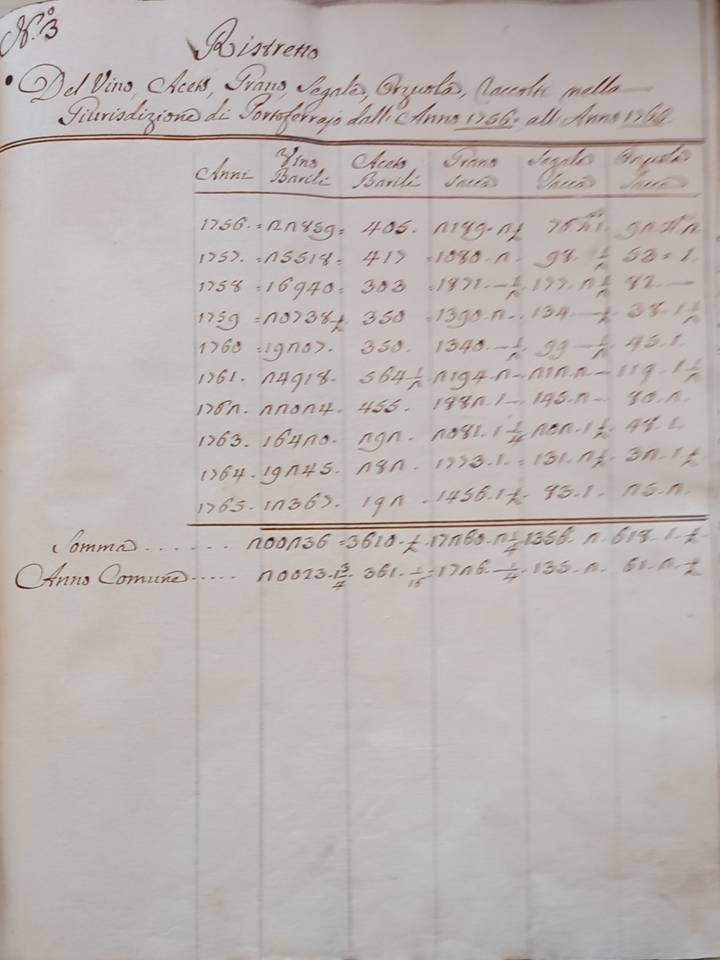 N.° 3
Ristretto
Del Vino, Aceto, Grano, Segale, Orzuola, Raccolti nella
Giurisdizione di Portoferrajo dall' Anno 1756. all' Anno 1765
Anni Vino Barili Aceto Barili Grano Sacca Segale Sacca Orzuola Sacca
1756. = 22859 = 405. 2189. 2½
1757. = 25518 = 417 = 1080. 2. 98. ½ 53 = 1.
1758 = 16940 = 303 = 1871. — ½ 177. 2½ 82. —
1759 = 20738½ 350 = 1390. 2 — 134. — ½ 38. 1½
1760 = 19207. 350. 1340. — ½ 99 — ½ 45. 1.
1761. 24918. 564½ 2194. 2 — 212. 2 — 119. 1½
1762. 22024. 455. 1882. 1 — 145. 2 — 80. 2.
1763. 16420. 292. 2081. 1¼ 202. 1½ 48. 1.
1764. 19245. 282. 1773. 1. = 131. 2½ 32. 1½
1765. 12367. 192 = 1456. 1½ 83. 1. 25. 2.
Somma . . . . . . 200236 = 3610. ½ 17260. 2¼ 1356. 2 618. 1. ½
Anno Comune ..... 20023. 361. 1726. — ¼ 135. 2. 61. 2. ½